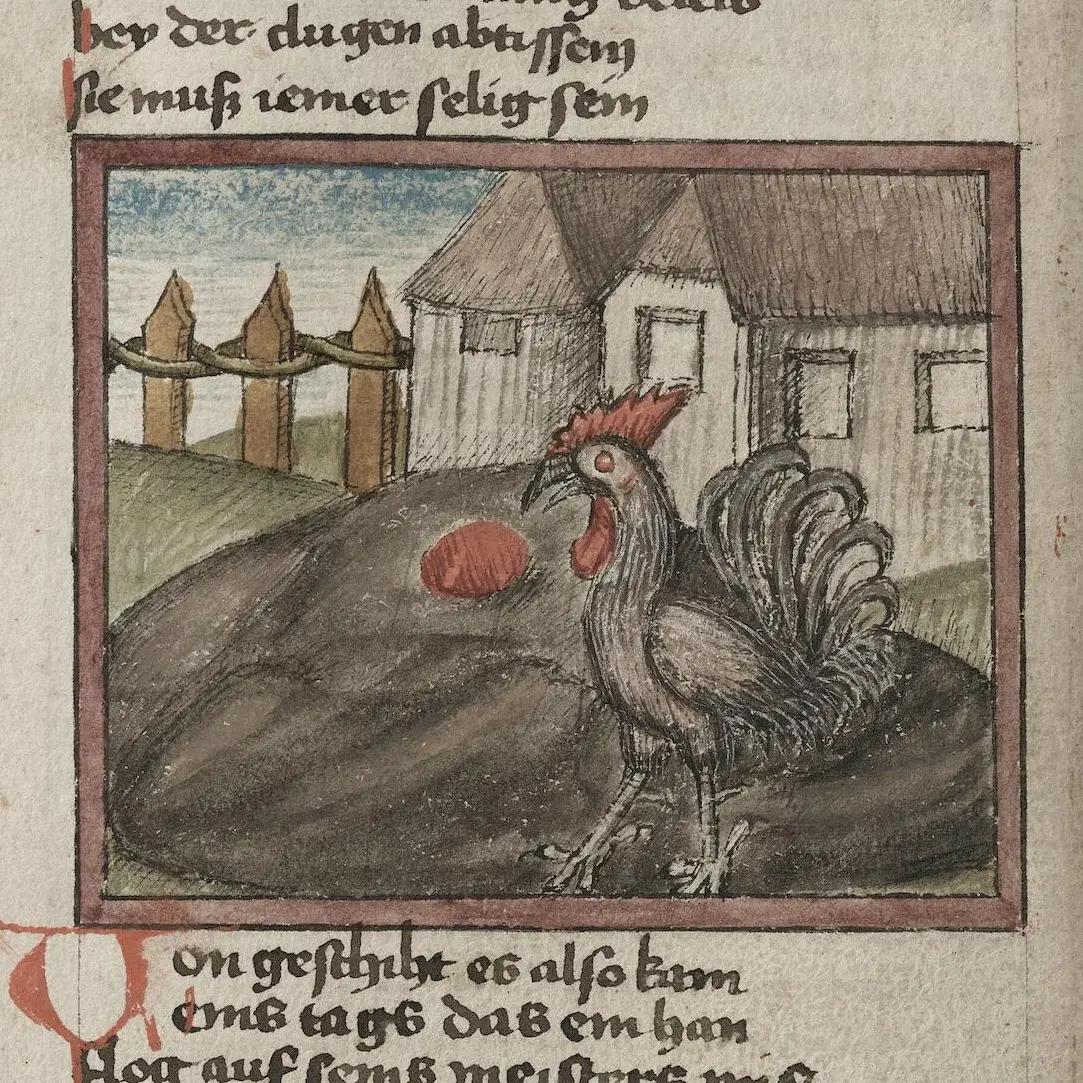 bey der clugen abtissein
sie muß iemer selig sein
Von geschiht es also kam
eins tags das ein han
flog auf seins meisters mist